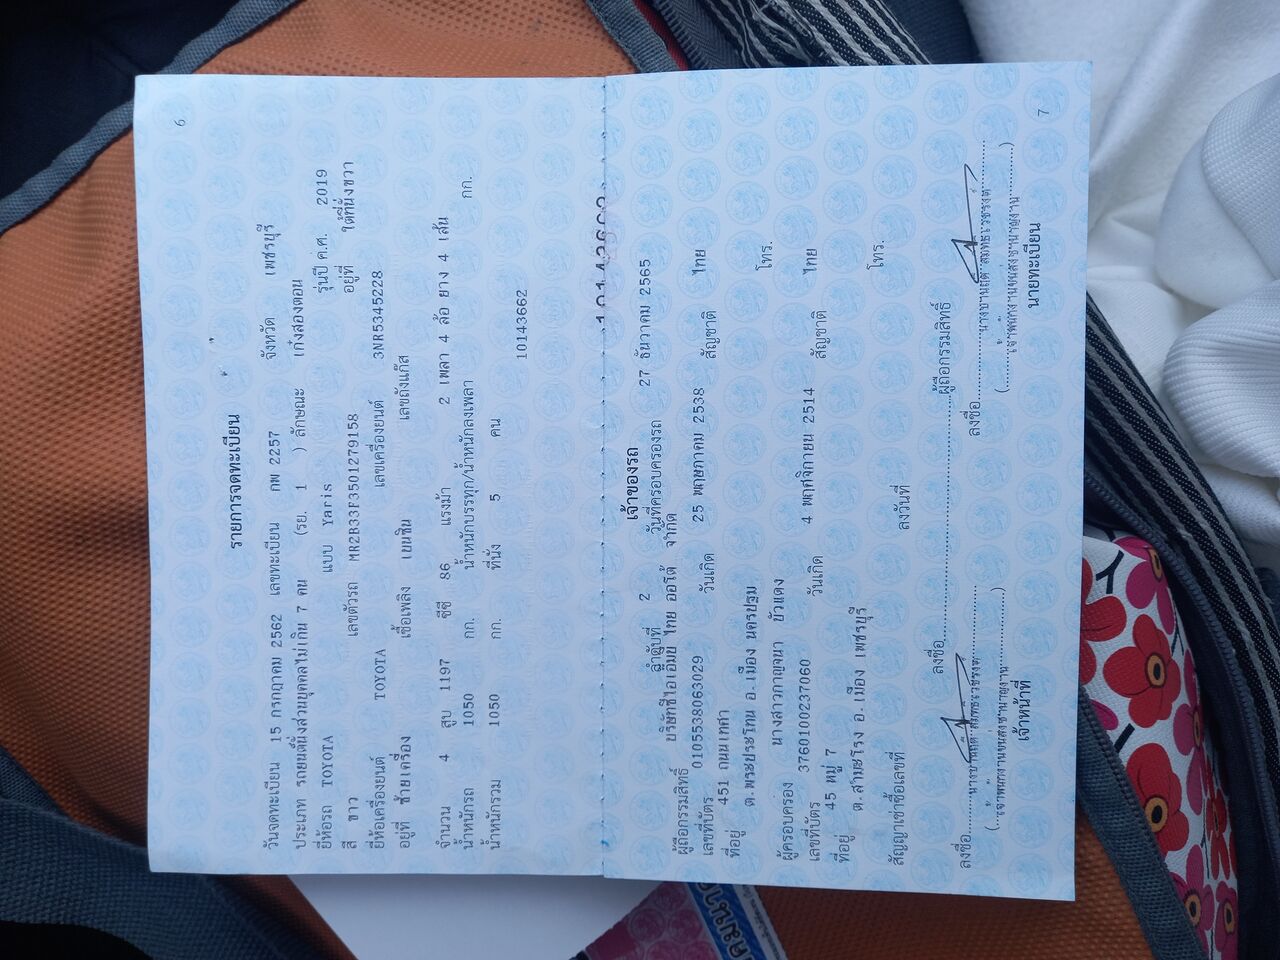 6
รายการจดทะเบียน
วันจดทะเบียน 15 กรกฎาคม 2562 เลขทะเบียน กพ 2257 จังหวัด เพชรบุรี
ประเภท รถยนต์นั่งส่วนบุคคลไม่เกิน 7 คน (รย. 1 ) ลักษณะ เก๋งสองตอน
ยี่ห้อรถ TOYOTA แบบ Yaris รุ่นปี ค.ศ. 2019
สี ขาว เลขตัวรถ MR2B33F3501279158 อยู่ที่ ใต้ที่นั่งขวา
ยี่ห้อเครื่องยนต์ TOYOTA เลขเครื่องยนต์ 3NR5345228
อยู่ที่ ซ้ายเครื่อง เชื้อเพลิง เบนซิน เลขถังแก๊ส
จำนวน 4 สูบ 1197 ซีซี 86 แรงม้า 2 เพลา 4 ล้อ ยาง 4 เส้น
น้ำหนักรถ 1050 กก. น้ำหนักบรรทุก/น้ำหนักลงเพลา กก.
น้ำหนักรวม 1050 กก. ที่นั่ง 5 คน
10143662
เจ้าของรถ
ลำดับที่ 2 วันที่ครอบครองรถ 27 ธันวาคม 2565
ผู้ถือกรรมสิทธิ์ บริษัทซีไอเอ็มบี ไทย ออโต้ จำกัด
เลขที่บัตร 0105538063029 วันเกิด 25 พฤษภาคม 2538 สัญชาติ ไทย
ที่อยู่ 451 ถนนเทศา
ต.พระประโทน อ.เมือง นครปฐม โทร.
ผู้ครอบครอง นางสาวกาญจนา บัวแดง
เลขที่บัตร 3760100237060 วันเกิด 4 พฤศจิกายน 2514 สัญชาติ ไทย
ที่อยู่ 45 หมู่ 7
ต.สามะโรง อ.เมือง เพชรบุรี โทร.
สัญญาเช่าซื้อเลขที่ ลงวันที่
ลงชื่อ ผู้ถือกรรมสิทธิ์
ลงชื่อ ลงชื่อ
เจ้าหน้าที่ นายทะเบียน
7